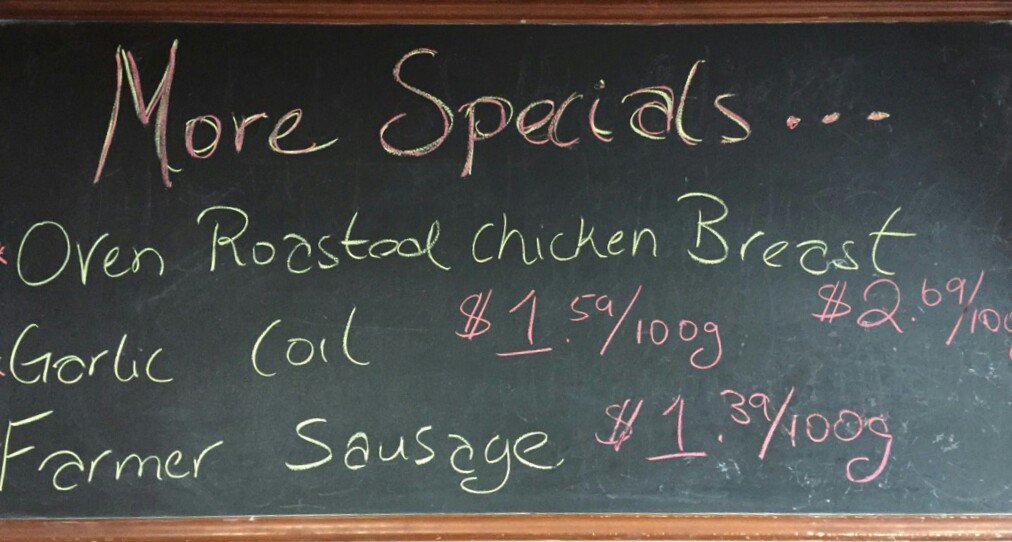 More Specials...
*Oven Roasted Chicken Breast
$2.69/100g
*Garlic Coil $1.59/100g
Farmer Sausage $1.39/100g